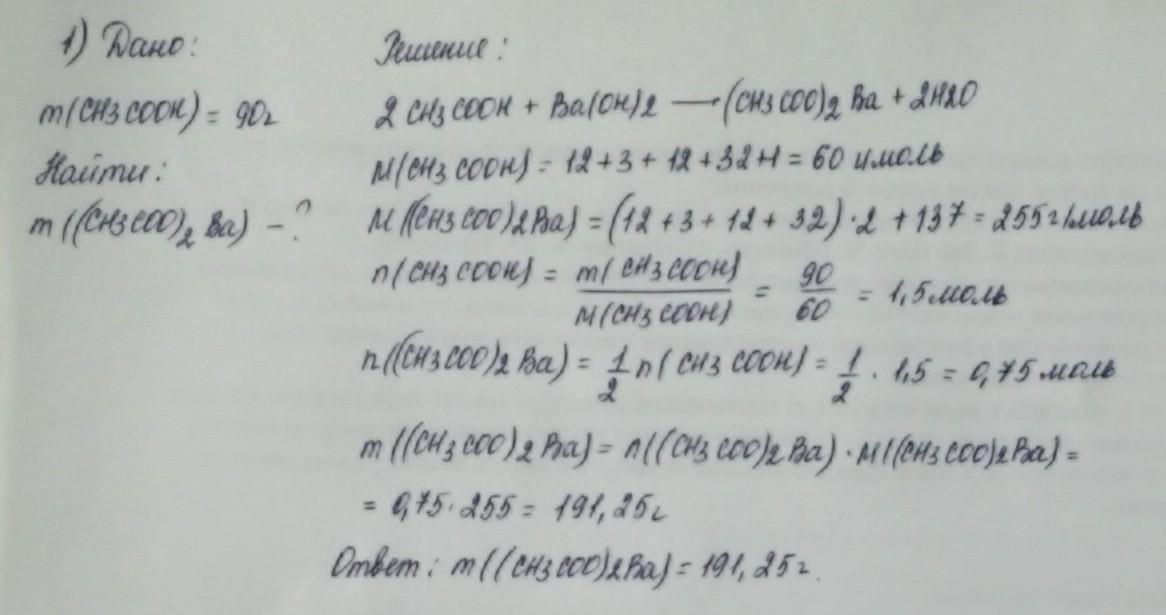 1) Дано:
Решение:
m(CH3COOH) = 90г
2 CH3COOH + Ba(OH)2 — (CH3COO)2 Ba + 2H2O
Найти:
M(CH3COOH) = 12+3+12+32+1 = 60 г/моль
m((CH3COO)2 Ba) - ?
M((CH3COO)2Ba) = (12+3+12+32)·2 + 137 = 255г/моль
n(CH3COOH) = m(CH3COOH) / M(CH3COOH) = 90 / 60 = 1,5моль
n((CH3COO)2 Ba) = 1/2 n(CH3COOH) = 1/2 · 1,5 = 0,75 моль
m((CH3COO)2 Ba) = n((CH3COO)2Ba) · M((CH3COO)2Ba) =
= 0,75·255 = 191,25г
Ответ: m((CH3COO)2Ba) = 191,25г.